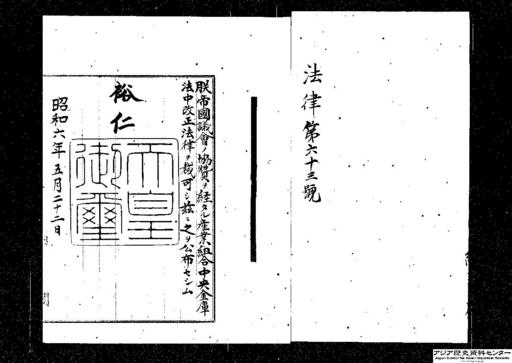 法律第六十三號
朕帝國議會ノ協贊ヲ經タル産業組合中央金庫
法中改正法律ヲ裁可シ茲ニ之ヲ公布セシム
裕仁
天皇
御璽
昭和六年五月二十二日
アジア歴史資料センター
Japan Center for Asian Historical Records